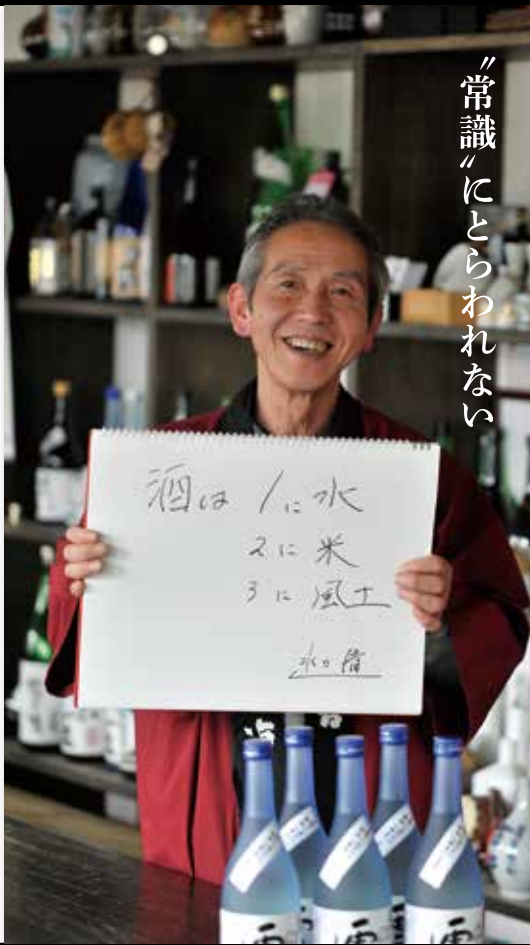 "常識"にとらわれない
酒は 1に水
2に米
3に風土